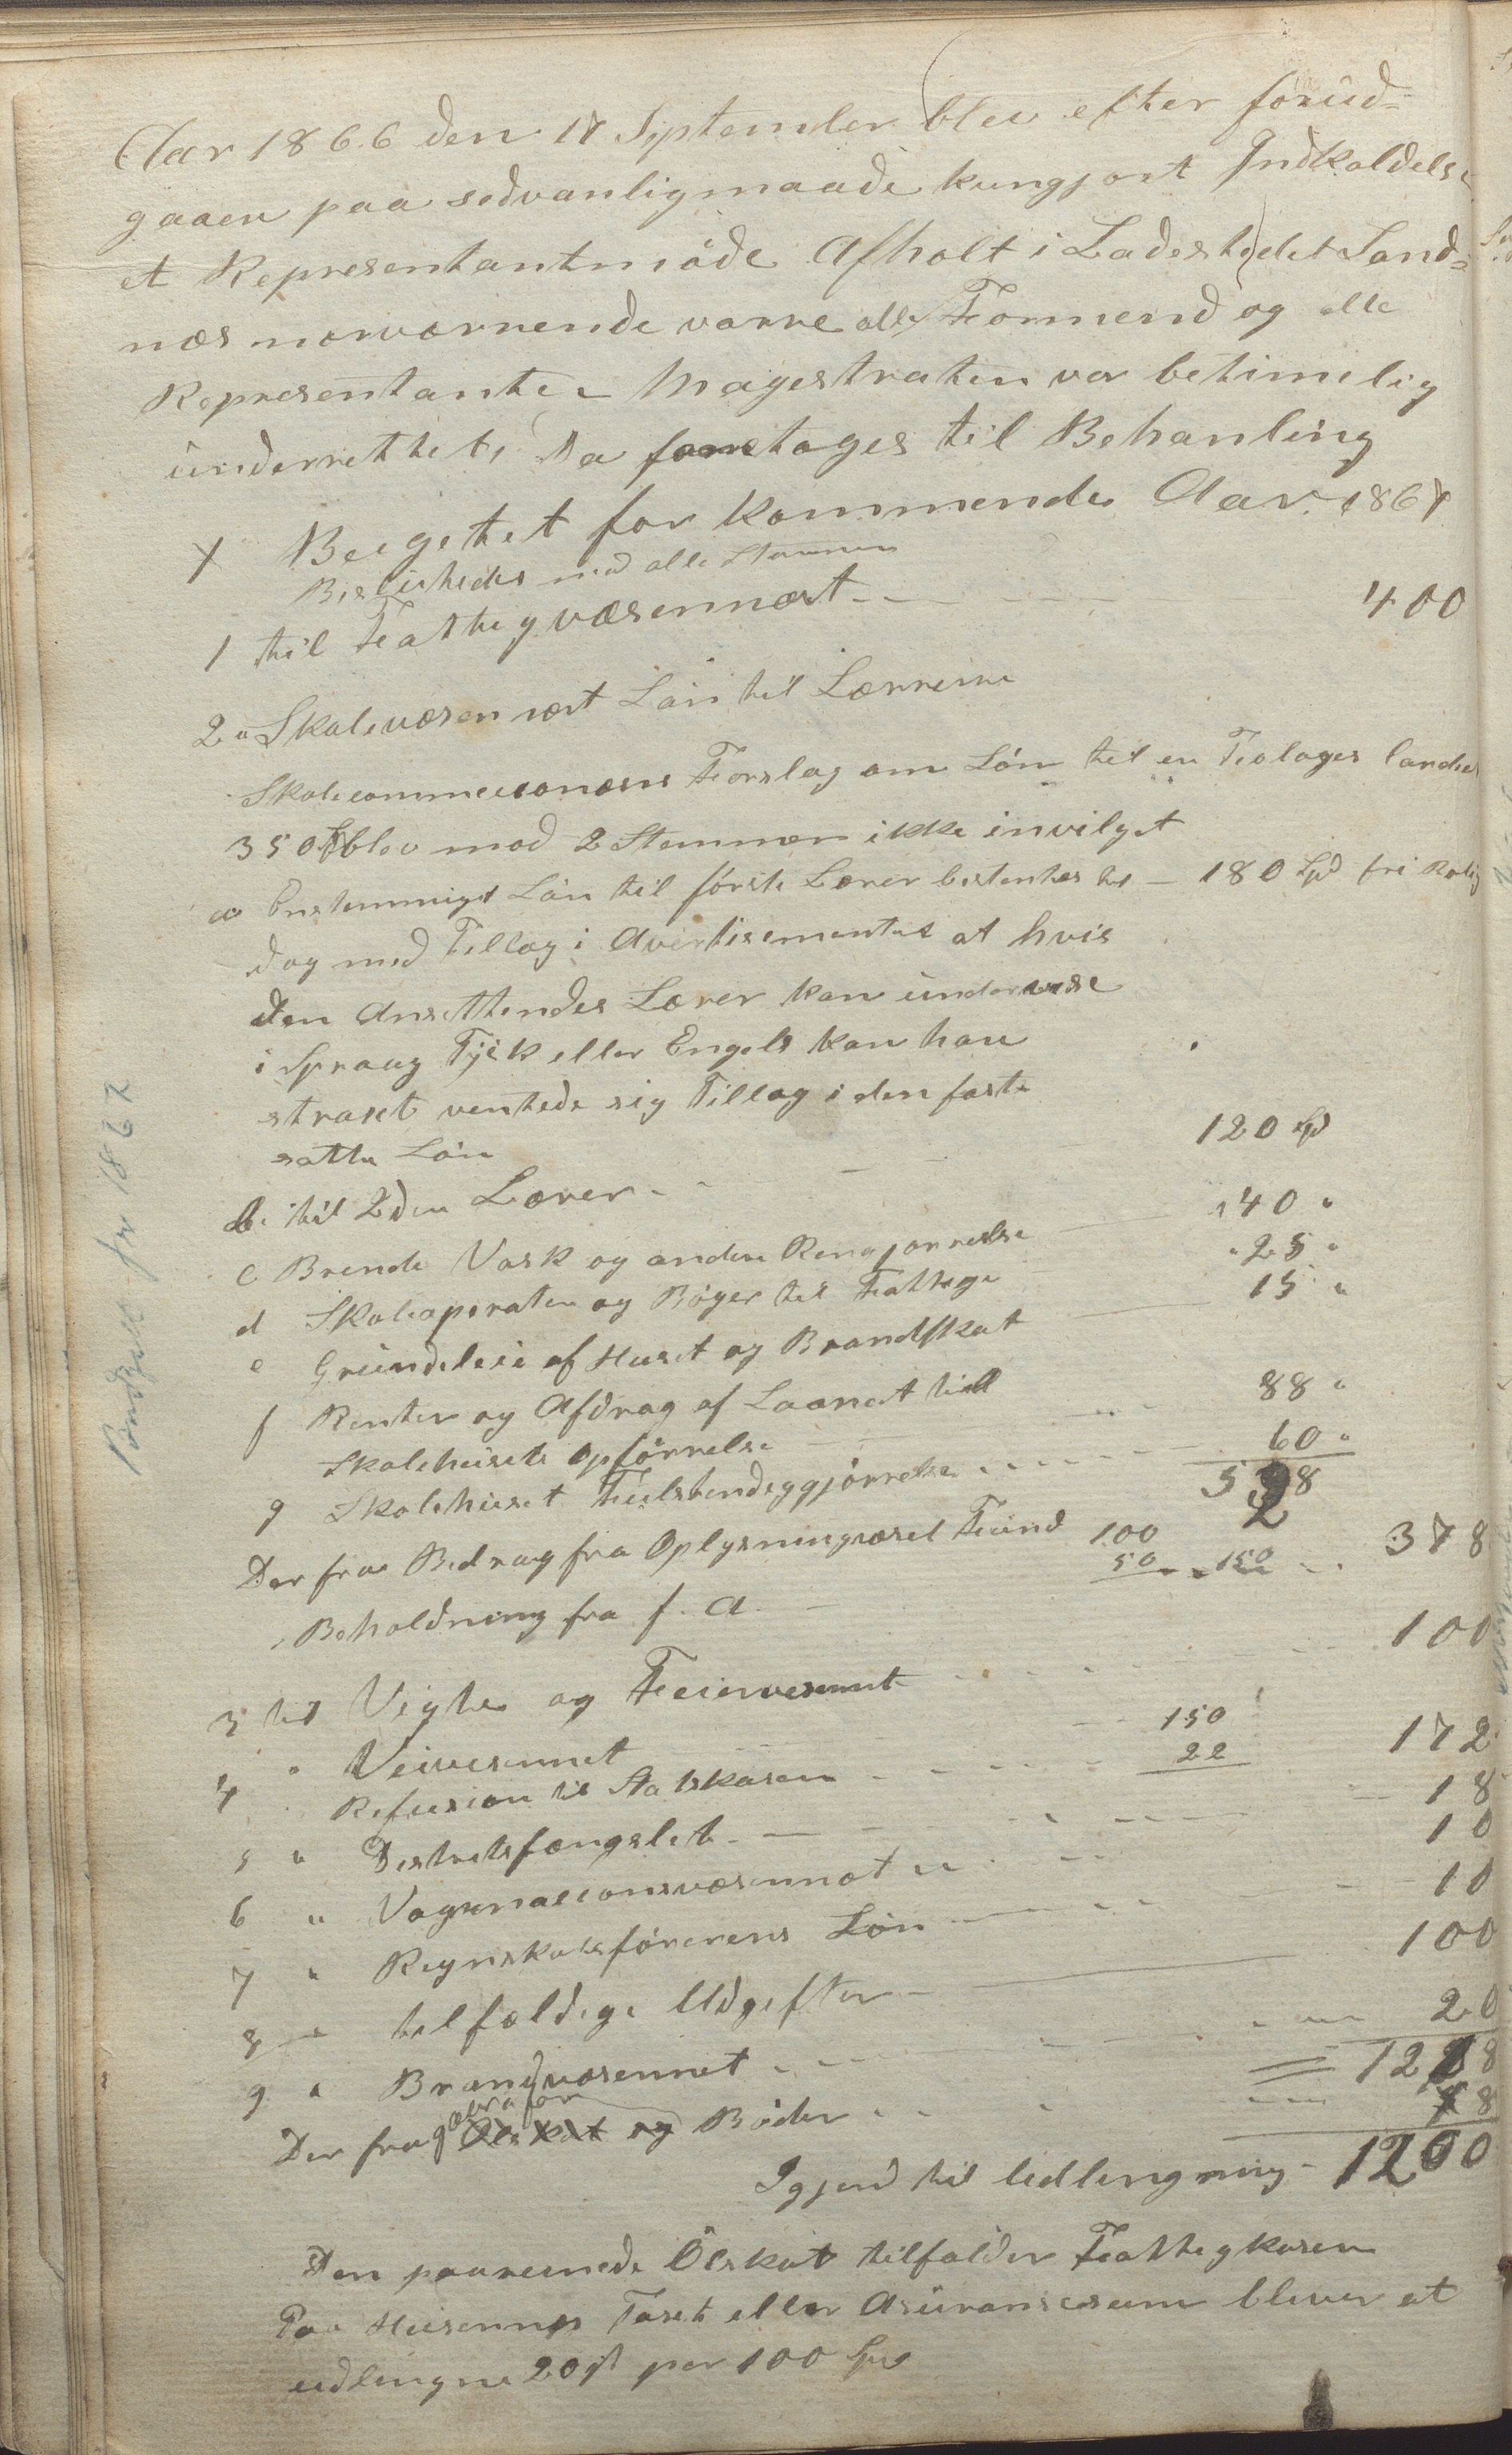 Aar 1866 den 17 September blev efter forud-
gaaen paa sedvanligmaade kungjort Indkaldelse
et Representantmøde Afholt i Ladestedet Sand-
næs nerværrende varre alle Formend og alle
Representanter Magestraten var betimelig
underrettet, Da foretoges til Behanling
X Bugetet for kommende Aar 1867
Besluttedes med alle Stemmer
1 til Fattigvæsennæt 400
2 a Skolevæsennæt Løn til Lærrerne
Skolecommisionens Forslag om Løn til en Teologes landed
350 Spd blev mod 2 Stemmer ikke invilget
a Enstemmigt Løn til første Lærer bestemtes til 180 Spd fri Bolig
dog med Tillæg i Avertisementet at hvis
den Ansettendes Lærer kan undervise
i Spraag Tysk eller Engels kan han
straxt ventede sig Tillæg i den fast
satte Løn
b. til 2den Lærer 120 Spd
c Brende Vask og anden Rengjørrelse 40 "
d Skoleaperater og Bøger til Fattige 25 "
e Grundeleie af Huset og Brandskat 15 "
f Renter og Afdrag af Laanet till
Skolehusets Opførrelse 88 "
g Skolehuset Fulstendiggjørrelse 60 "
528
Der fra Bedrag fra Oplysningvæsel Fund 100
Beholdning fra f. A. 50 150 378
3 til Vigter og Feiervesenet 100
4 " Veivesennet 150
Refusion til Statskasen 22 172
5 " Destriktsfængslet 18
6 " Vagsinasionsvæsennæt 10
7 " Regnskabsførerens Løn 10
8 " tilfeldige Udgifter 100
9 " Brandvæsennet 20
1208
Der fra Ølskat og Bøder 8
Igjend til Udlingning 1200
Den paareinede Ølskat tilfalder Fattigkasen
Paa Husennes Taxt eller Asuransesum bliver at
udlingne 20 s per 100 Spd
Budgett for 1867